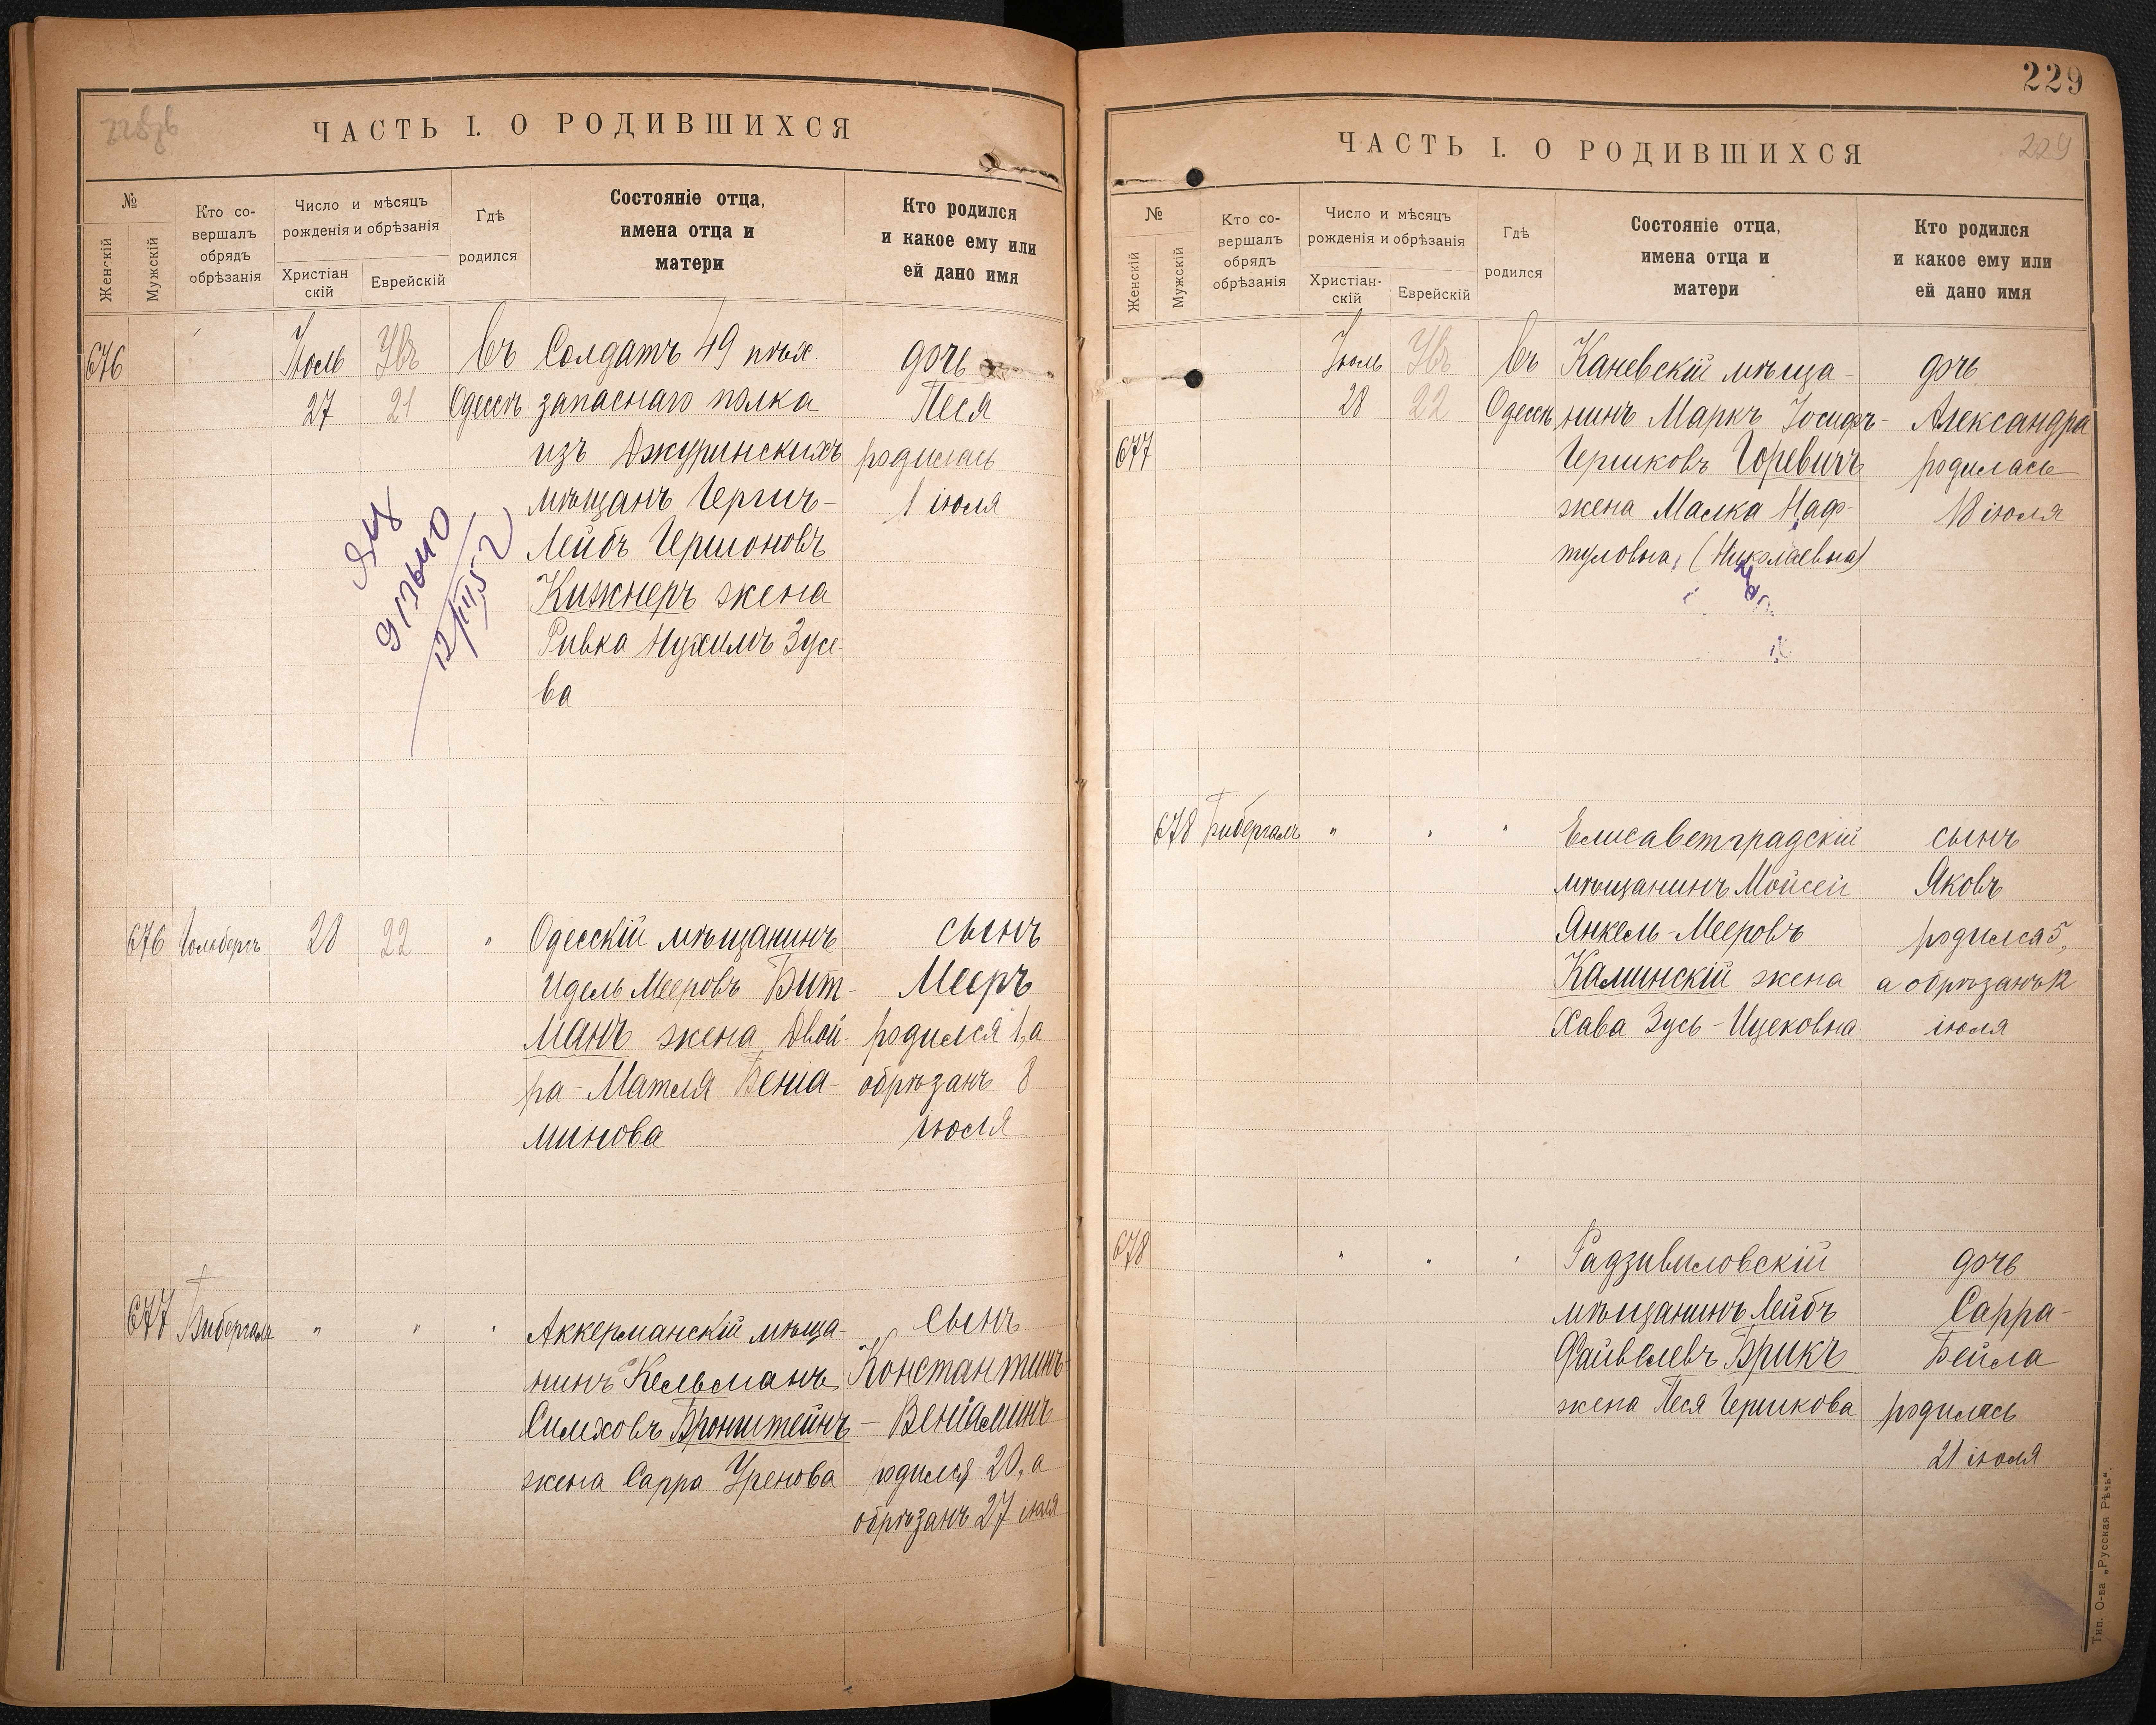 ЧАСТЬ I. О РОДИВШИХСЯ
№
Женскій
Мужскій
Кто со-
вершалъ
обрядъ
обрѣзанія
Число и мѣсяцъ
рожденія и обрѣзанія
Христіан
скій
Еврейскій
Гдѣ
родился
Состояніе отца,
имена отца и
матери
Кто родился
и какое ему или
ей дано имя
676
Іюль
27
21
въ
Одессѣ
Солдатъ 49 пѣх.
запаснаго полка
изъ Джуринскихъ
мѣщанъ Гершъ-
Лейбъ Гершоновъ
Кижнеръ жена
Ривка Нухимъ Зусе-
ва
дочь
Песя
родилась
1 іюля
676
Гольдбергъ
28
22
"
Одесскій мѣщанинъ
Идель Мееровъ Бит-
манъ жена Двой-
ра-Матля Веніа-
минова
сынъ
Мееръ
родился 1, а
обрѣзанъ 8
іюля
677
Бибергалъ
"
"
"
Аккерманскій мѣща-
нинъ Кельманъ
Симховъ Бронштейнъ
жена Сарра Уренова
сынъ
Константинъ-
- Веніаминъ
родился 20, а
обрѣзанъ 27 іюля
229
ЧАСТЬ I. О РОДИВШИХСЯ
229
№
Женскій
Мужскій
Кто со-
вершалъ
обрядъ
обрѣзанія
Число и мѣсяцъ
рожденія и обрѣзанія
Христіан-
скій
Еврейскій
Гдѣ
родился
Состояніе отца,
имена отца и
матери
Кто родился
и какое ему или
ей дано имя
677
Іюль
28
22
въ
Одессѣ
Каневскій мѣща-
нинъ Маркъ Іосифъ-
Гершковъ Горевичъ
жена Малка Наф-
туловна, (Николаевна)
дочь
Александра
родилась
18 іюля
678
Бибергалъ
"
"
"
Елисаветградскій
мѣщанинъ Мойсей
Янкель-Мееровъ
Каминскій жена
Хава Зусь-Ицековна
сынъ
Яковъ
родился 5,
а обрѣзанъ 12
іюля
678
"
"
"
Радзивиловскій
мѣщанинъ Лейбъ
Файвелевъ Брикъ
жена Песя Гершкова
дочь
Сарра-
Бейла
родилась
21 іюля
Тип. О-ва „Русская Рѣчь“.